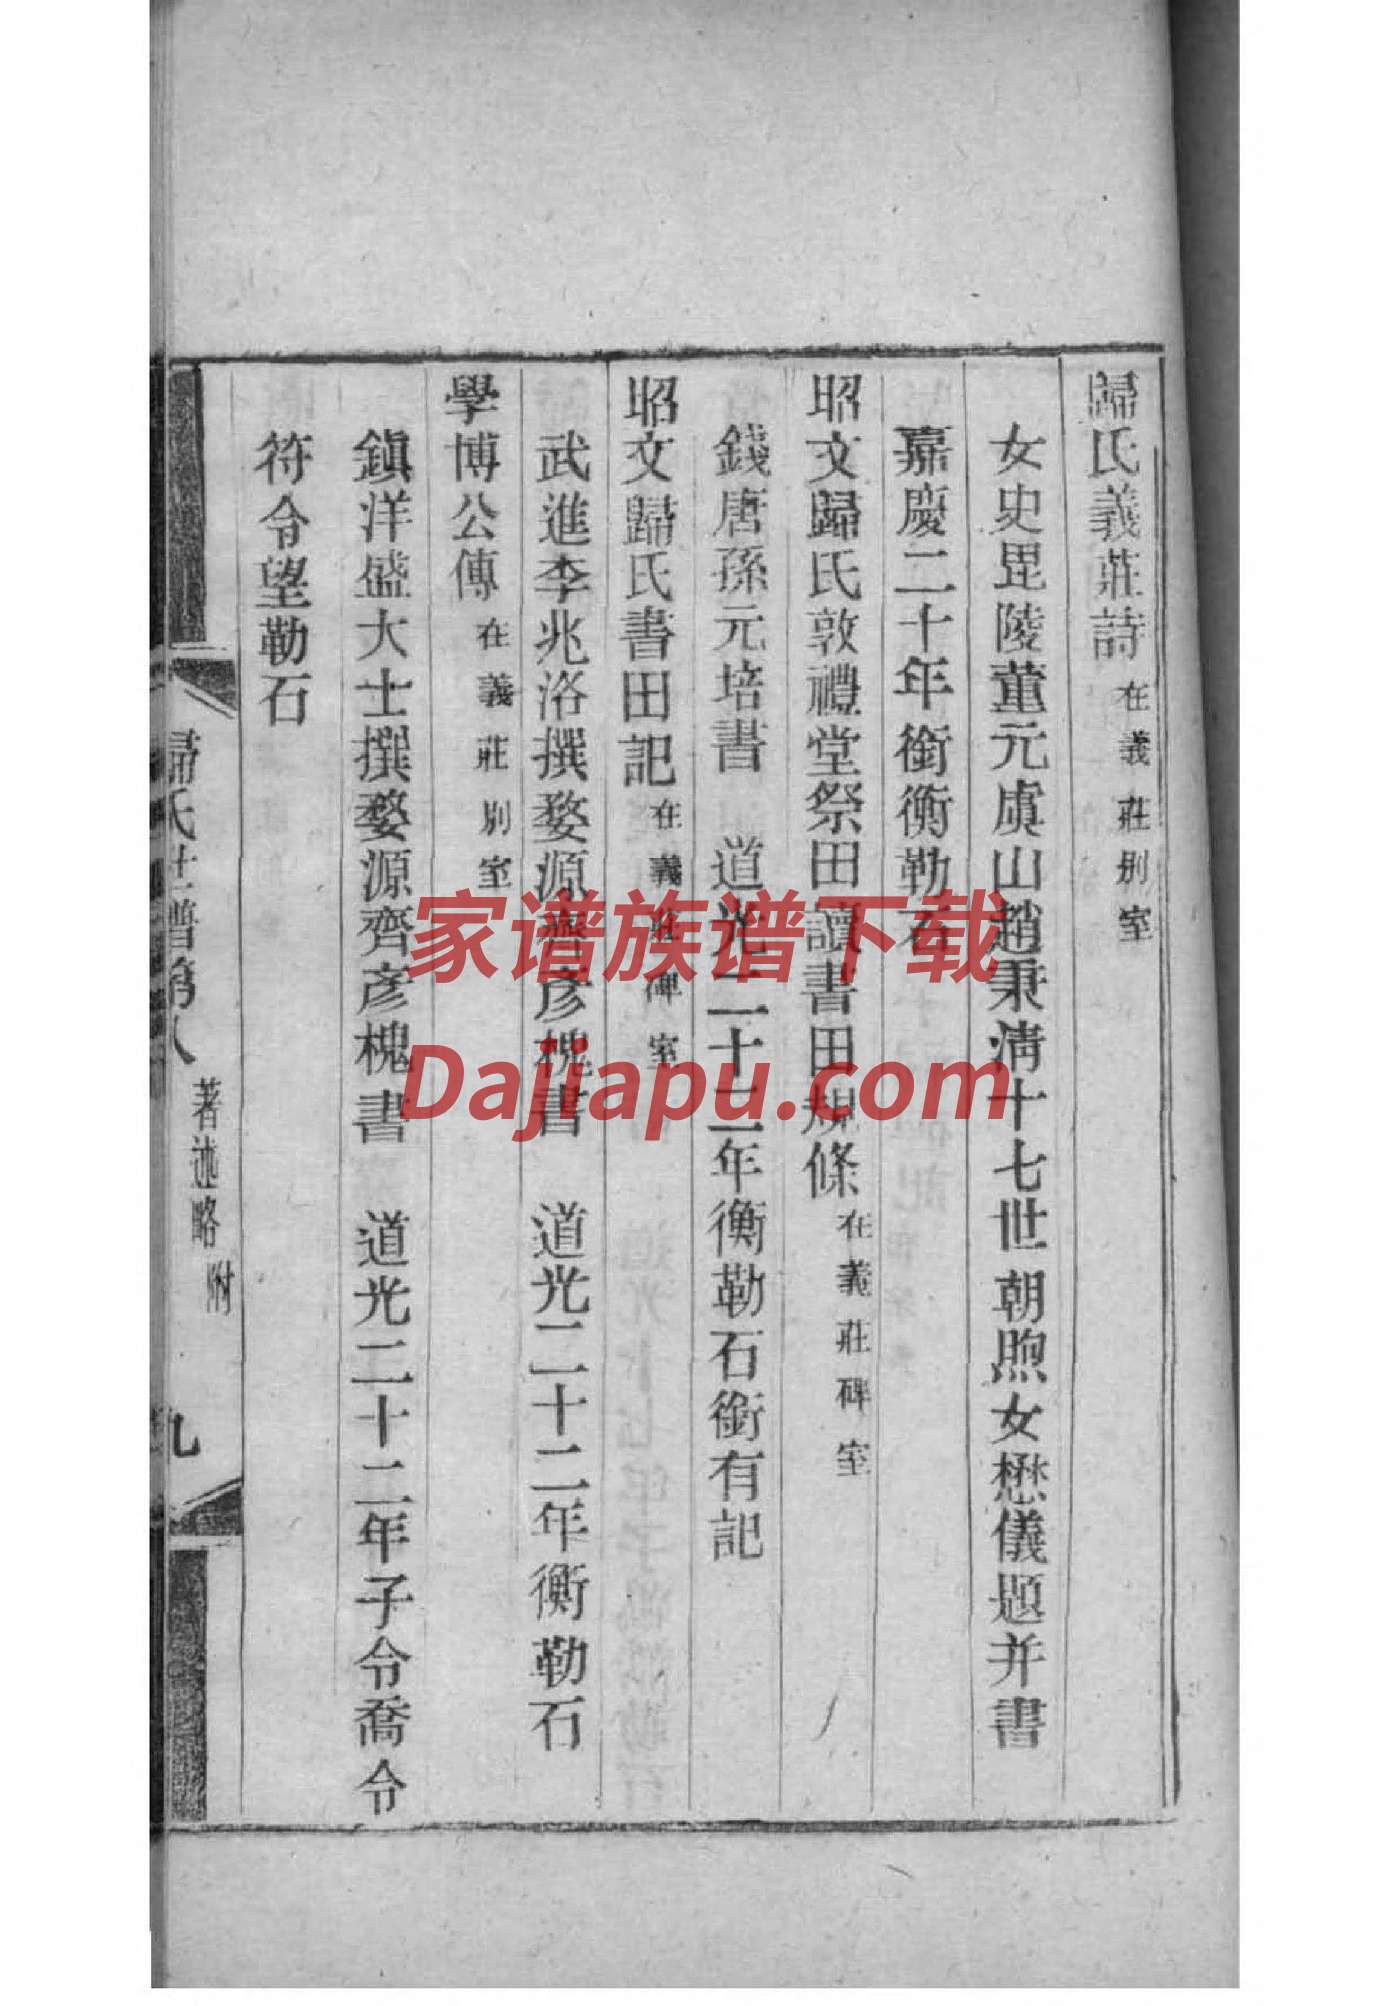 歸氏義莊詩在義莊別室
女史毘陵董元虞山趙秉淸十七世朝煦女懋儀題并書
嘉慶二十年銜衡勒石
昭文歸氏敦禮堂祭田讀書田規條在義莊碑室
錢唐孫元培書　道光二十二年衡勒石銜有記
昭文歸氏書田記在義莊碑室
武進李兆洛撰婺源齊彥槐書　道光二十二年衡勒石
學博公傳在義莊別室
鎭洋盛大士撰婺源齊彥槐書　道光二十二年子令喬令
符令望勒石
歸氏世譜第八　著述略附　九
家谱族谱下载
Dajiapu.com